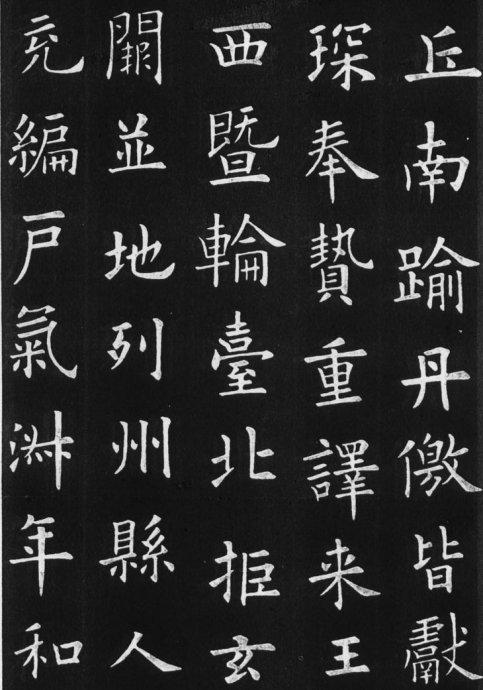 丘南踰丹徼皆獻
琛奉贄重譯来王
西暨輪臺北拒玄
闕並地列州縣人
充編戸氣淋年和